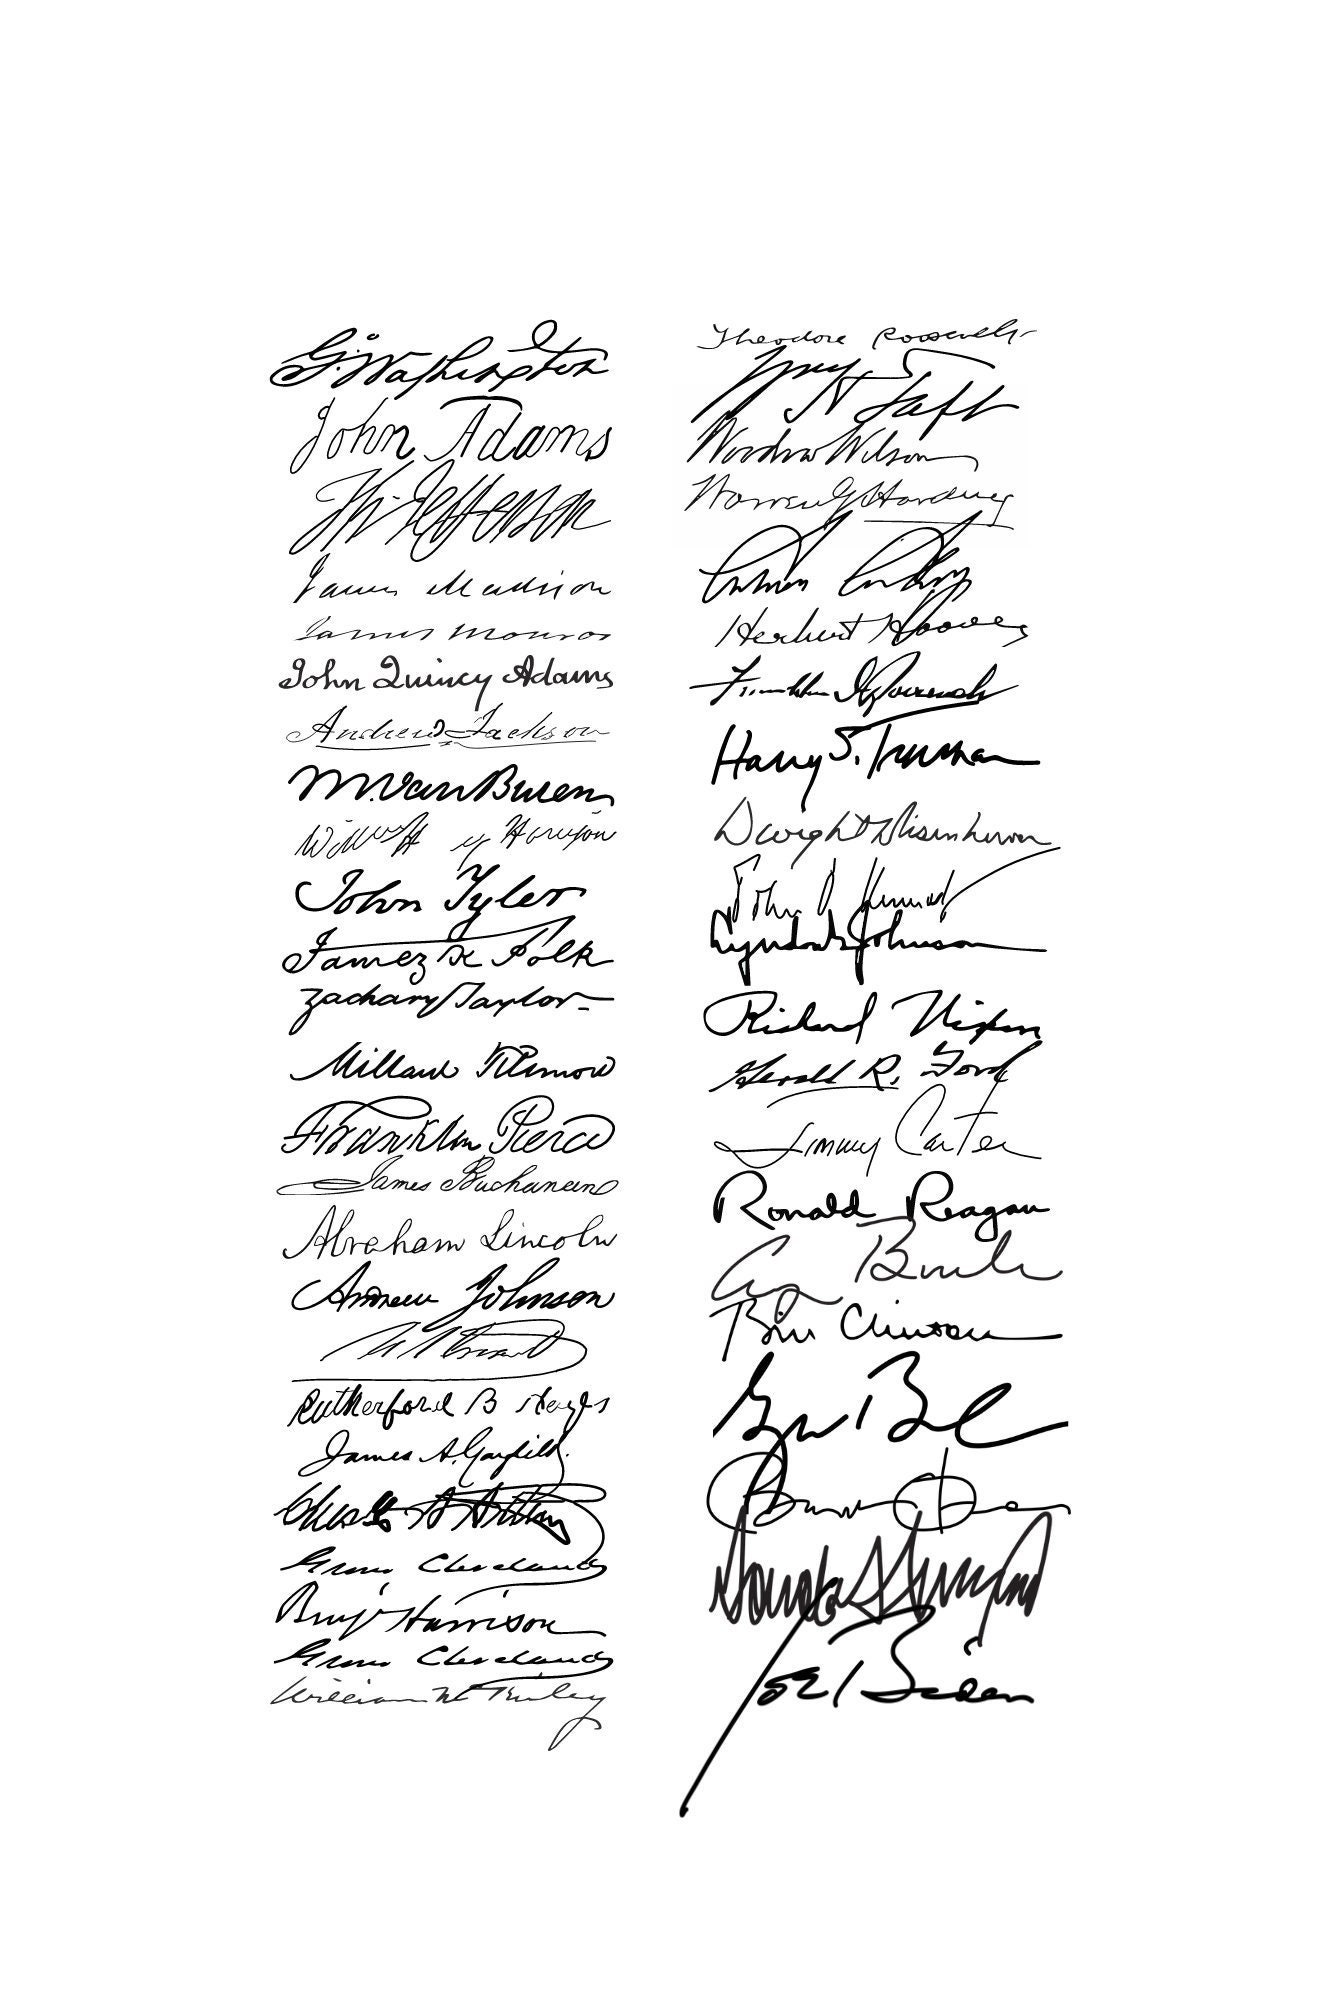 G. Washington
John Adams
Th. Jefferson
James Madison
James Monroe
John Quincy Adams
Andrew Jackson
M. Van Buren
W H Harrison
John Tyler
James K Polk
Zachary Taylor
Millard Fillmore
Franklin Pierce
James Buchanan
Abraham Lincoln
Andrew Johnson
U. S. Grant
Rutherford B Hayes
James A. Garfield.
Chester A Arthur
Grover Cleveland
Benj Harrison
Grover Cleveland
William McKinley
Theodore Roosevelt
Wm H Taft
Woodrow Wilson
Warren G Harding
Calvin Coolidge
Herbert Hoover
Franklin D Roosevelt
Harry S. Truman
Dwight D Eisenhower
John Kennedy
Lyndon B Johnson
Richard Nixon
Gerald R. Ford
Jimmy Carter
Ronald Reagan
G Bush
Bill Clinton
G W Bush
Barack Obama
Donald Trump
Joe Biden